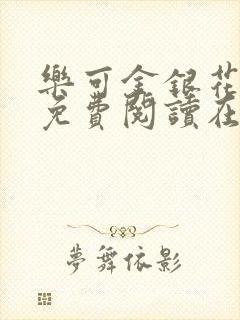 樂可金銀花
免費閱讀在
夢舞依影